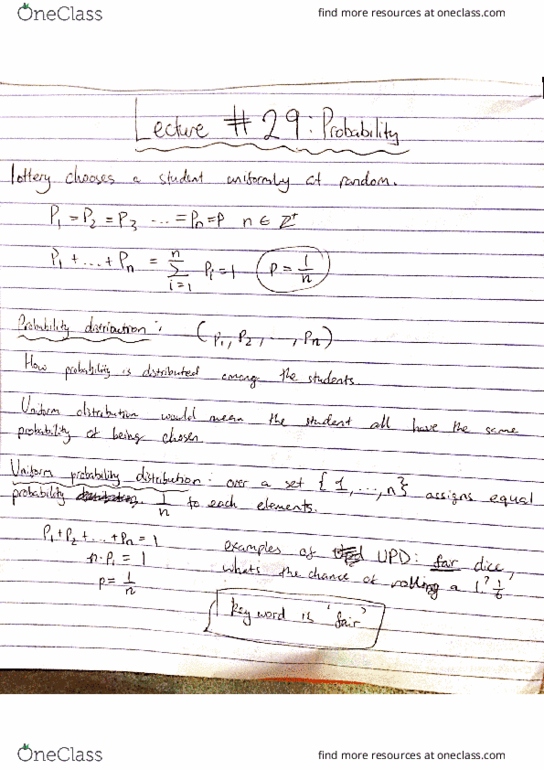 OneClass
find more resources at oneclass.com
Lecture # 29: Probability
lottery chooses a student uniformly at random.
P₁ = P₂ = P₃ ... = Pₙ = P n ∈ Z⁺
P₁ + ... + Pₙ = n∑i=1 Pᵢ = 1 P = 1/n
Probability distribution: (P₁, P₂, ..., Pₙ)
How probability is distributed among the students.
Uniform distribution would mean the student all have the same
probability of being chosen.
Uniform probability distribution: over a set {1, ..., n} assigns equal
probability 1/n to each elements.
P₁ + P₂ + ... + Pₙ = 1
n · P₁ = 1
p = 1/n
examples of UPD: fair dice,
whats the chance of rolling a 1? 1/6
key word is 'fair'
OneClass
find more resources at oneclass.com